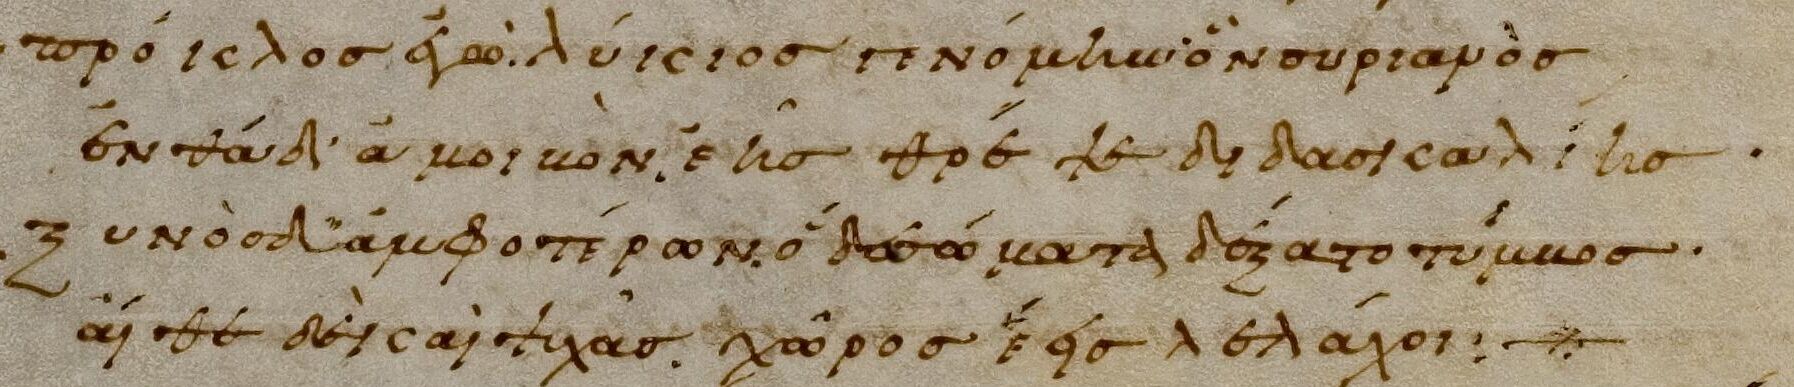 πρόκλος ἐγὼ. λύκιος γενόμην· ὃν συριανὸς
ἐνθάδ' ἀμοιβὸν, ἑῆς θρέψε διδασκαλίης.
ξυνὸς δ' ἀμφοτέρων. ὅδε σώματα δέξατο τύμβος.
αἴθε δὲ καὶ ψυχὰς. χῶρος ἕεις λελάχοι: